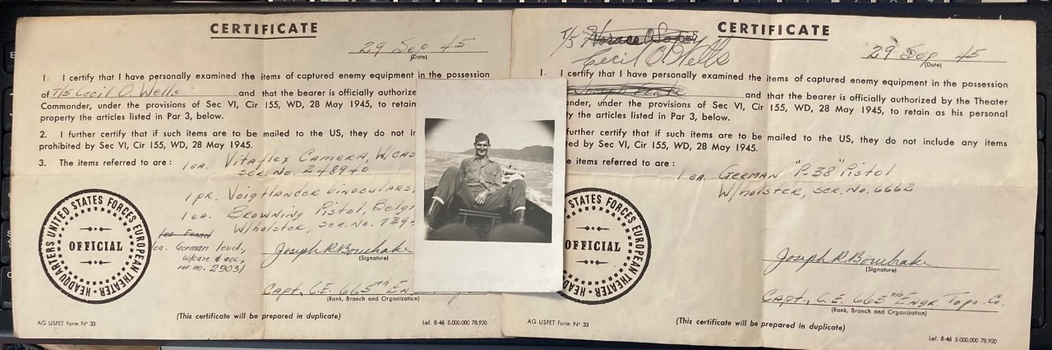 CERTIFICATE
29 Sep 45
(Date)
1. I certify that I have personally examined the items of captured enemy equipment in the possession
of T/5 Cecil O. Wells and that the bearer is officially authorize
Commander, under the provisions of Sec VI, Cir 155, WD, 28 May 1945, to retain
property the articles listed in Par 3, below.
2. I further certify that if such items are to be mailed to the US, they do not in
prohibited by Sec VI, Cir 155, WD, 28 May 1945.
3. The items referred to are :
1 ea. Vitaflex Camera, W/cas
Ser. No. 248940
1 pr. Voigtlander binoculars,
1 ea. Browning Pistol, Belgi
W/holster, Ser. No. 739
ea. German level,
w/case & acc,
ser no. 29031
HEADQUARTERS UNITED STATES FORCES EUROPEAN THEATER
OFFICIAL
Joseph R Bowhake
(Signature)
Capt, C.E. 665th En
(Rank, Branch and Organization)
(This certificate will be prepared in duplicate)
AG USFET Form No 33
CERTIFICATE
T/5
Cecil O Wells
29 Sep 45
(Date)
1. I certify that I have personally examined the items of captured enemy equipment in the possession
and that the bearer is officially authorized by the Theater
nder, under the provisions of Sec VI, Cir 155, WD, 28 May 1945, to retain as his personal
y the articles listed in Par 3, below.
further certify that if such items are to be mailed to the US, they do not include any items
ed by Sec VI, Cir 155, WD, 28 May 1945.
e items referred to are :
1 ea. German "P-38" Pistol
W/holster, ser. No. 6662
STATES FORCES EUROPEAN THEATER
OFFICIAL
Joseph R Bowhake
(Signature)
Capt, C.E. 665th Engr Topo. Co.
(Rank, Branch and Organization)
(This certificate will be prepared in duplicate)
Lef. B-46 5.000.000 78.920
AG USFET Form No 33
Lef. B-46 5.000.000 78.920